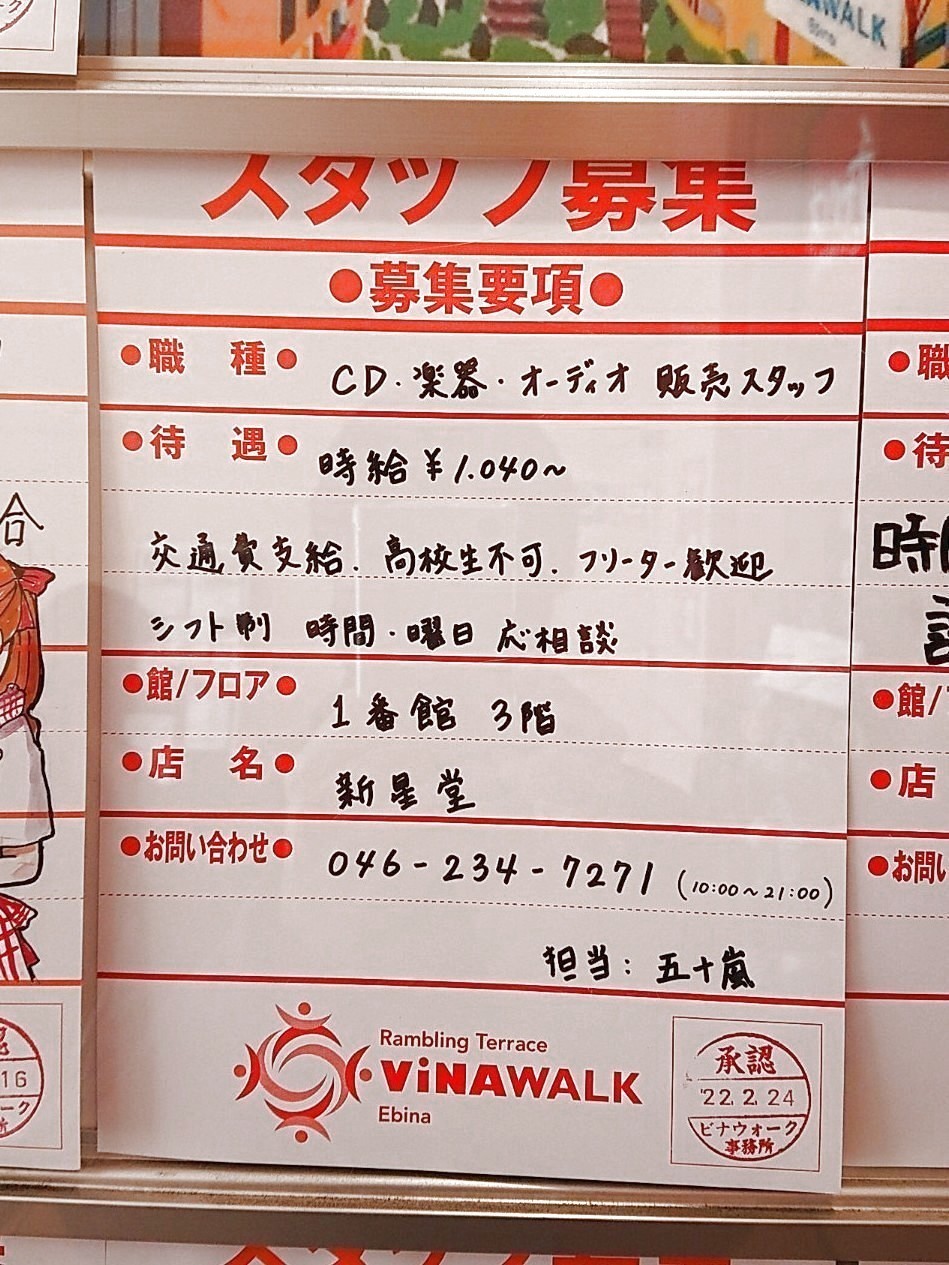 NAWALK
スタッフ募集
●募集要項●
●職 種● CD・楽器・オーディオ 販売スタッフ
●待 遇● 時給¥1.040~
交通費支給. 高校生不可. フリーター歓迎
シフト制 時間・曜日 応相談
●館/フロア● 1番館 3階
●店 名● 新星堂
●お問い合わせ● 046-234-7271 (10:00~21:00)
担当: 五十嵐
Rambling Terrace
ViNAWALK
Ebina
承認
'22.2.24
ビナウォーク
事務所
合
16
ーク
●職
●待
時
●館/
●店
●お問い